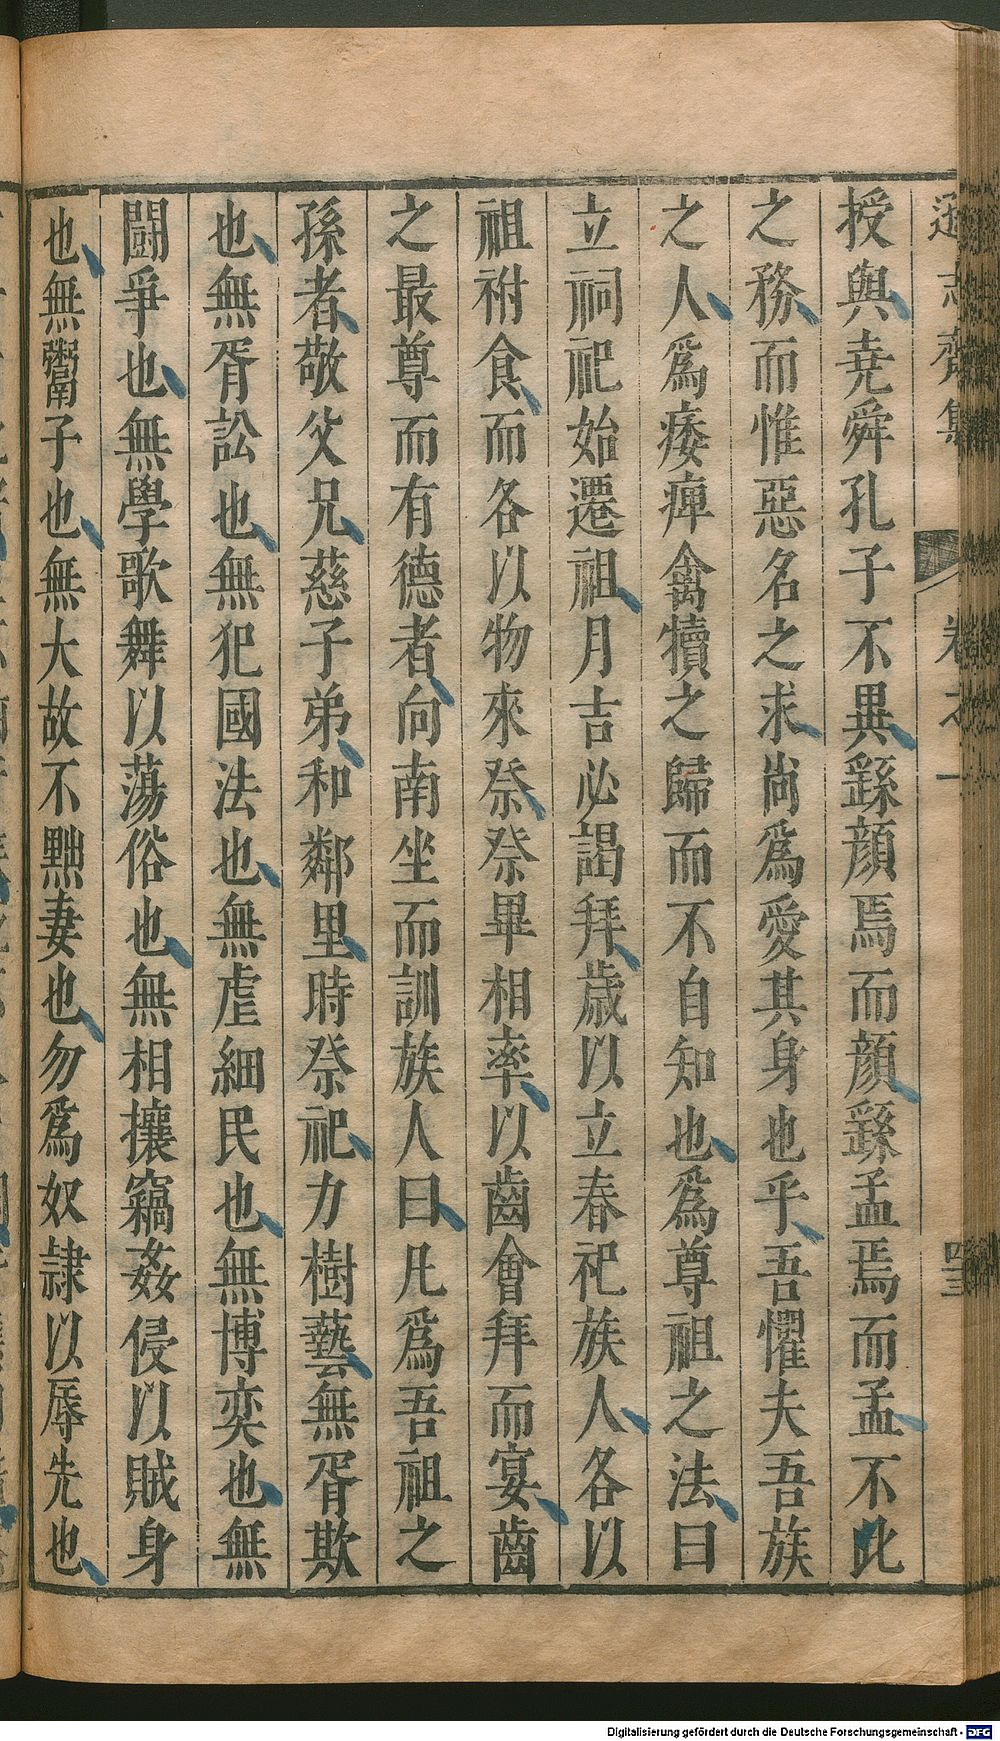 遜志齋集 卷之一 四三
授與堯舜孔子不異繇顔焉而顔繇孟焉而孟不此
之務而惟惡名之求尚爲愛其身也乎吾懼夫吾族
之人爲痿痺禽犢之歸而不自知也爲尊祖之法曰
立祠祀始遷祖月吉必謁拜歲以立春祀族人各以
祖祔食而各以物來祭祭畢相率以齒會拜而宴齒
之最尊而有德者向南坐而訓族人曰凡爲吾祖之
孫者敬父兄慈子弟和鄰里時祭祀力樹藝無胥欺
也無胥訟也無犯國法也無虐細民也無博奕也無
鬪爭也無學歌舞以蕩俗也無相攘竊姦侵以賊身
也無鬻子也無大故不黜妻也勿爲奴隷以辱先也
Digitalisierung gefördert durch die Deutsche Forschungsgemeinschaft - DFG